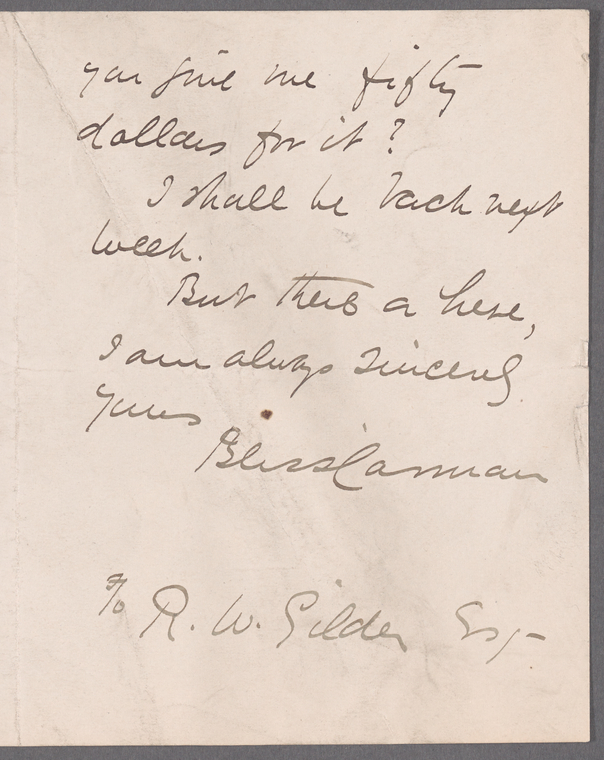 you give me fifty
dollars for it?
I shall be back next
week.
But there or here,
I am always sincerely
yours
Bliss Carman
To R. W. Gilder Esq.